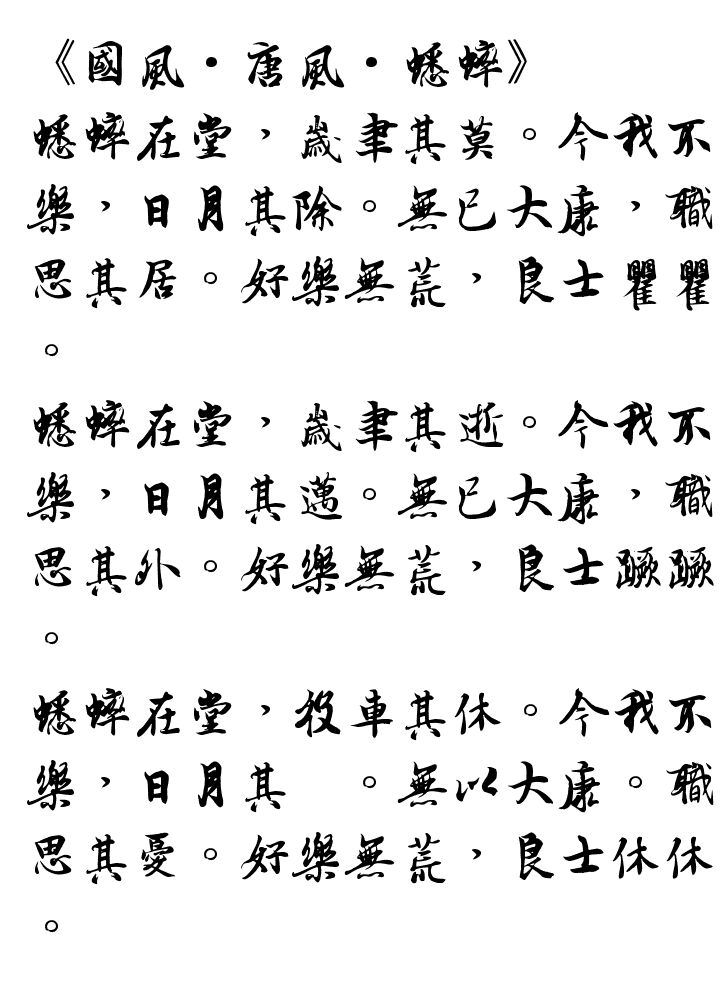 《國風·唐風·蟋蟀》
蟋蟀在堂，歲聿其莫。今我不
樂，日月其除。無已大康，職
思其居。好樂無荒，良士瞿瞿
。
蟋蟀在堂，歲聿其逝。今我不
樂，日月其邁。無已大康，職
思其外。好樂無荒，良士蹶蹶
。
蟋蟀在堂，役車其休。今我不
樂，日月其　。無以大康。職
思其憂。好樂無荒，良士休休
。